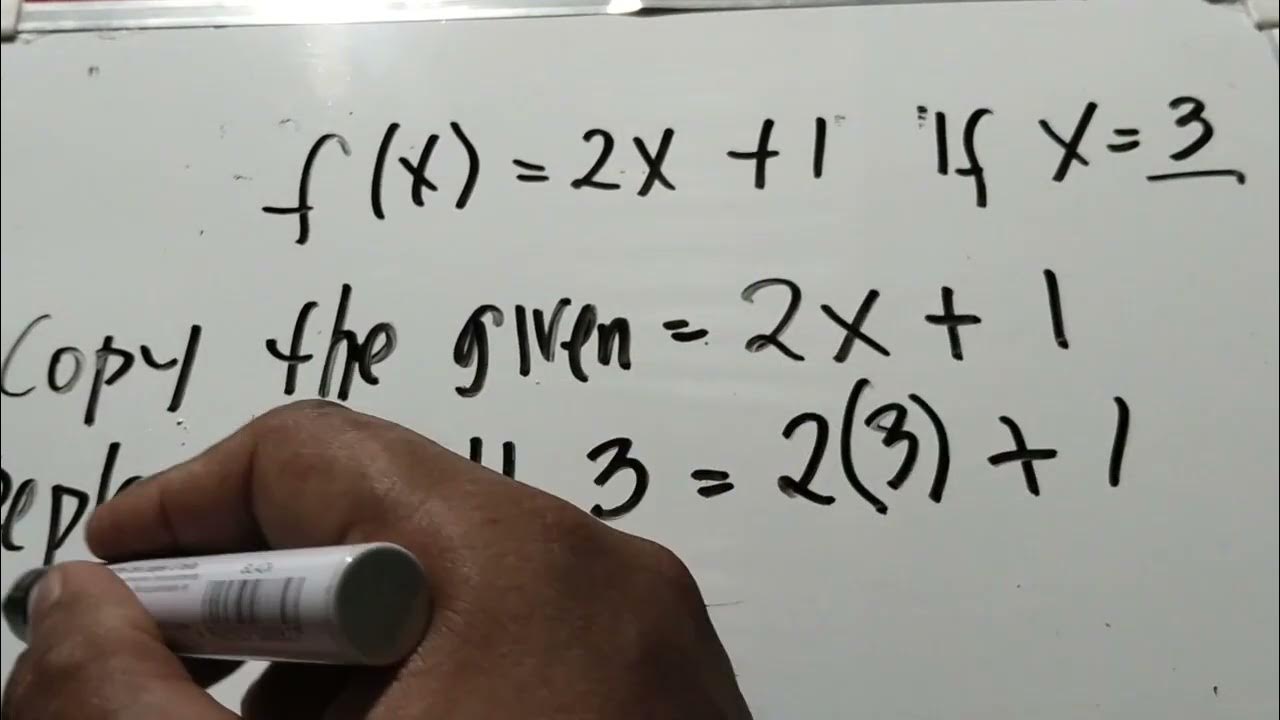 f(x) = 2x + 1 if x = 3
Copy the given = 2x + 1
3 = 2(3) + 1